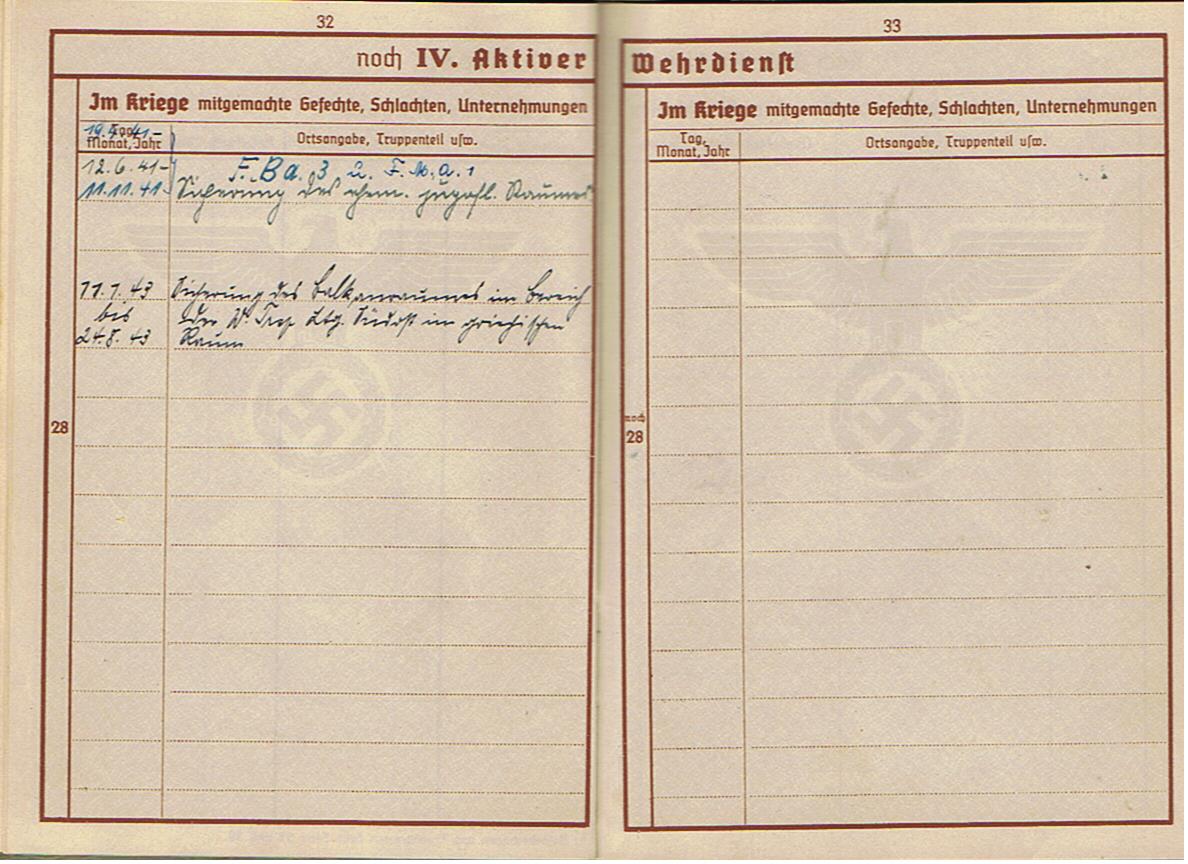 32
noch IV. Aktiver
Im Kriege mitgemachte Gefechte, Schlachten, Unternehmungen
19.4.41-
Tag, Monat, Jahr
Ortsangabe, Truppenteil usw.
12.6.41-
F. Ba. 3 u. F. M. a. 1
11.11.41-
Sicherung des ehem. jugosl. Raumes
11.1.43
Sicherung des Balkanraumes im Bereich
bis
der Ltg. Südost im griechischen
24.8.43
Raum
28
33
Wehrdienst
Im Kriege mitgemachte Gefechte, Schlachten, Unternehmungen
Tag,
Monat, Jahr
Ortsangabe, Truppenteil usw.
noch
28